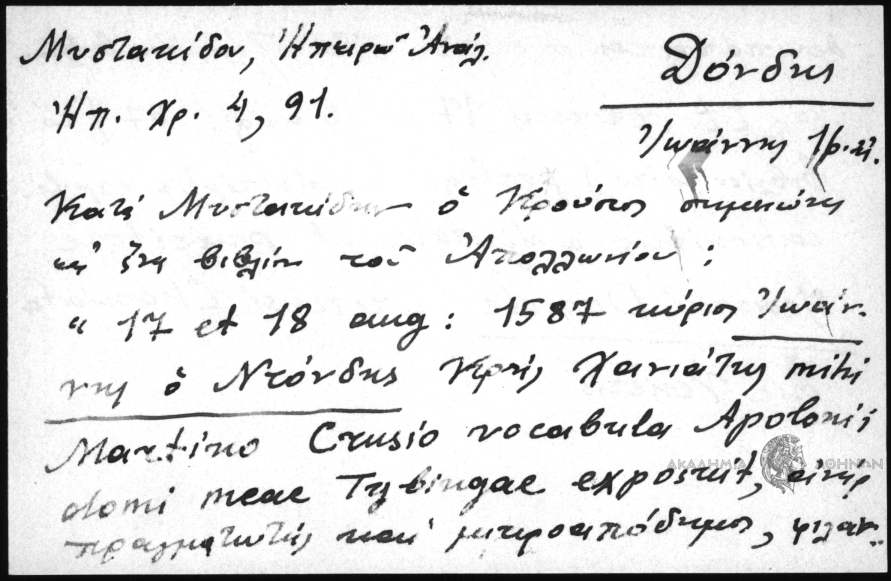 Μυστακίδου, Ἠπειρω Ἀνάλ.
Ἠπ. Χρ. 4, 91.
Δόνδης
Ἰωάννης
Κατὰ Μυστακίδην ὁ Κρούσιος σημειώνει
ἕνα βιβλίον τοῦ Ἀπολλωνίου :
" 17 et 18 aug : 1587 κύριος Ἰωάν-
νης ὁ Ντόνδης Κρὴς Χανιάτης mihi
Martino Crusio vocabula Apolonii
domi meae Tybingae exposuit, ἀνὴρ
πραγματευτὴς καὶ μικροαπόδημος, φιλαν..
ΑΚΑΔΗΜΙΑ ΑΘΗΝΩΝ